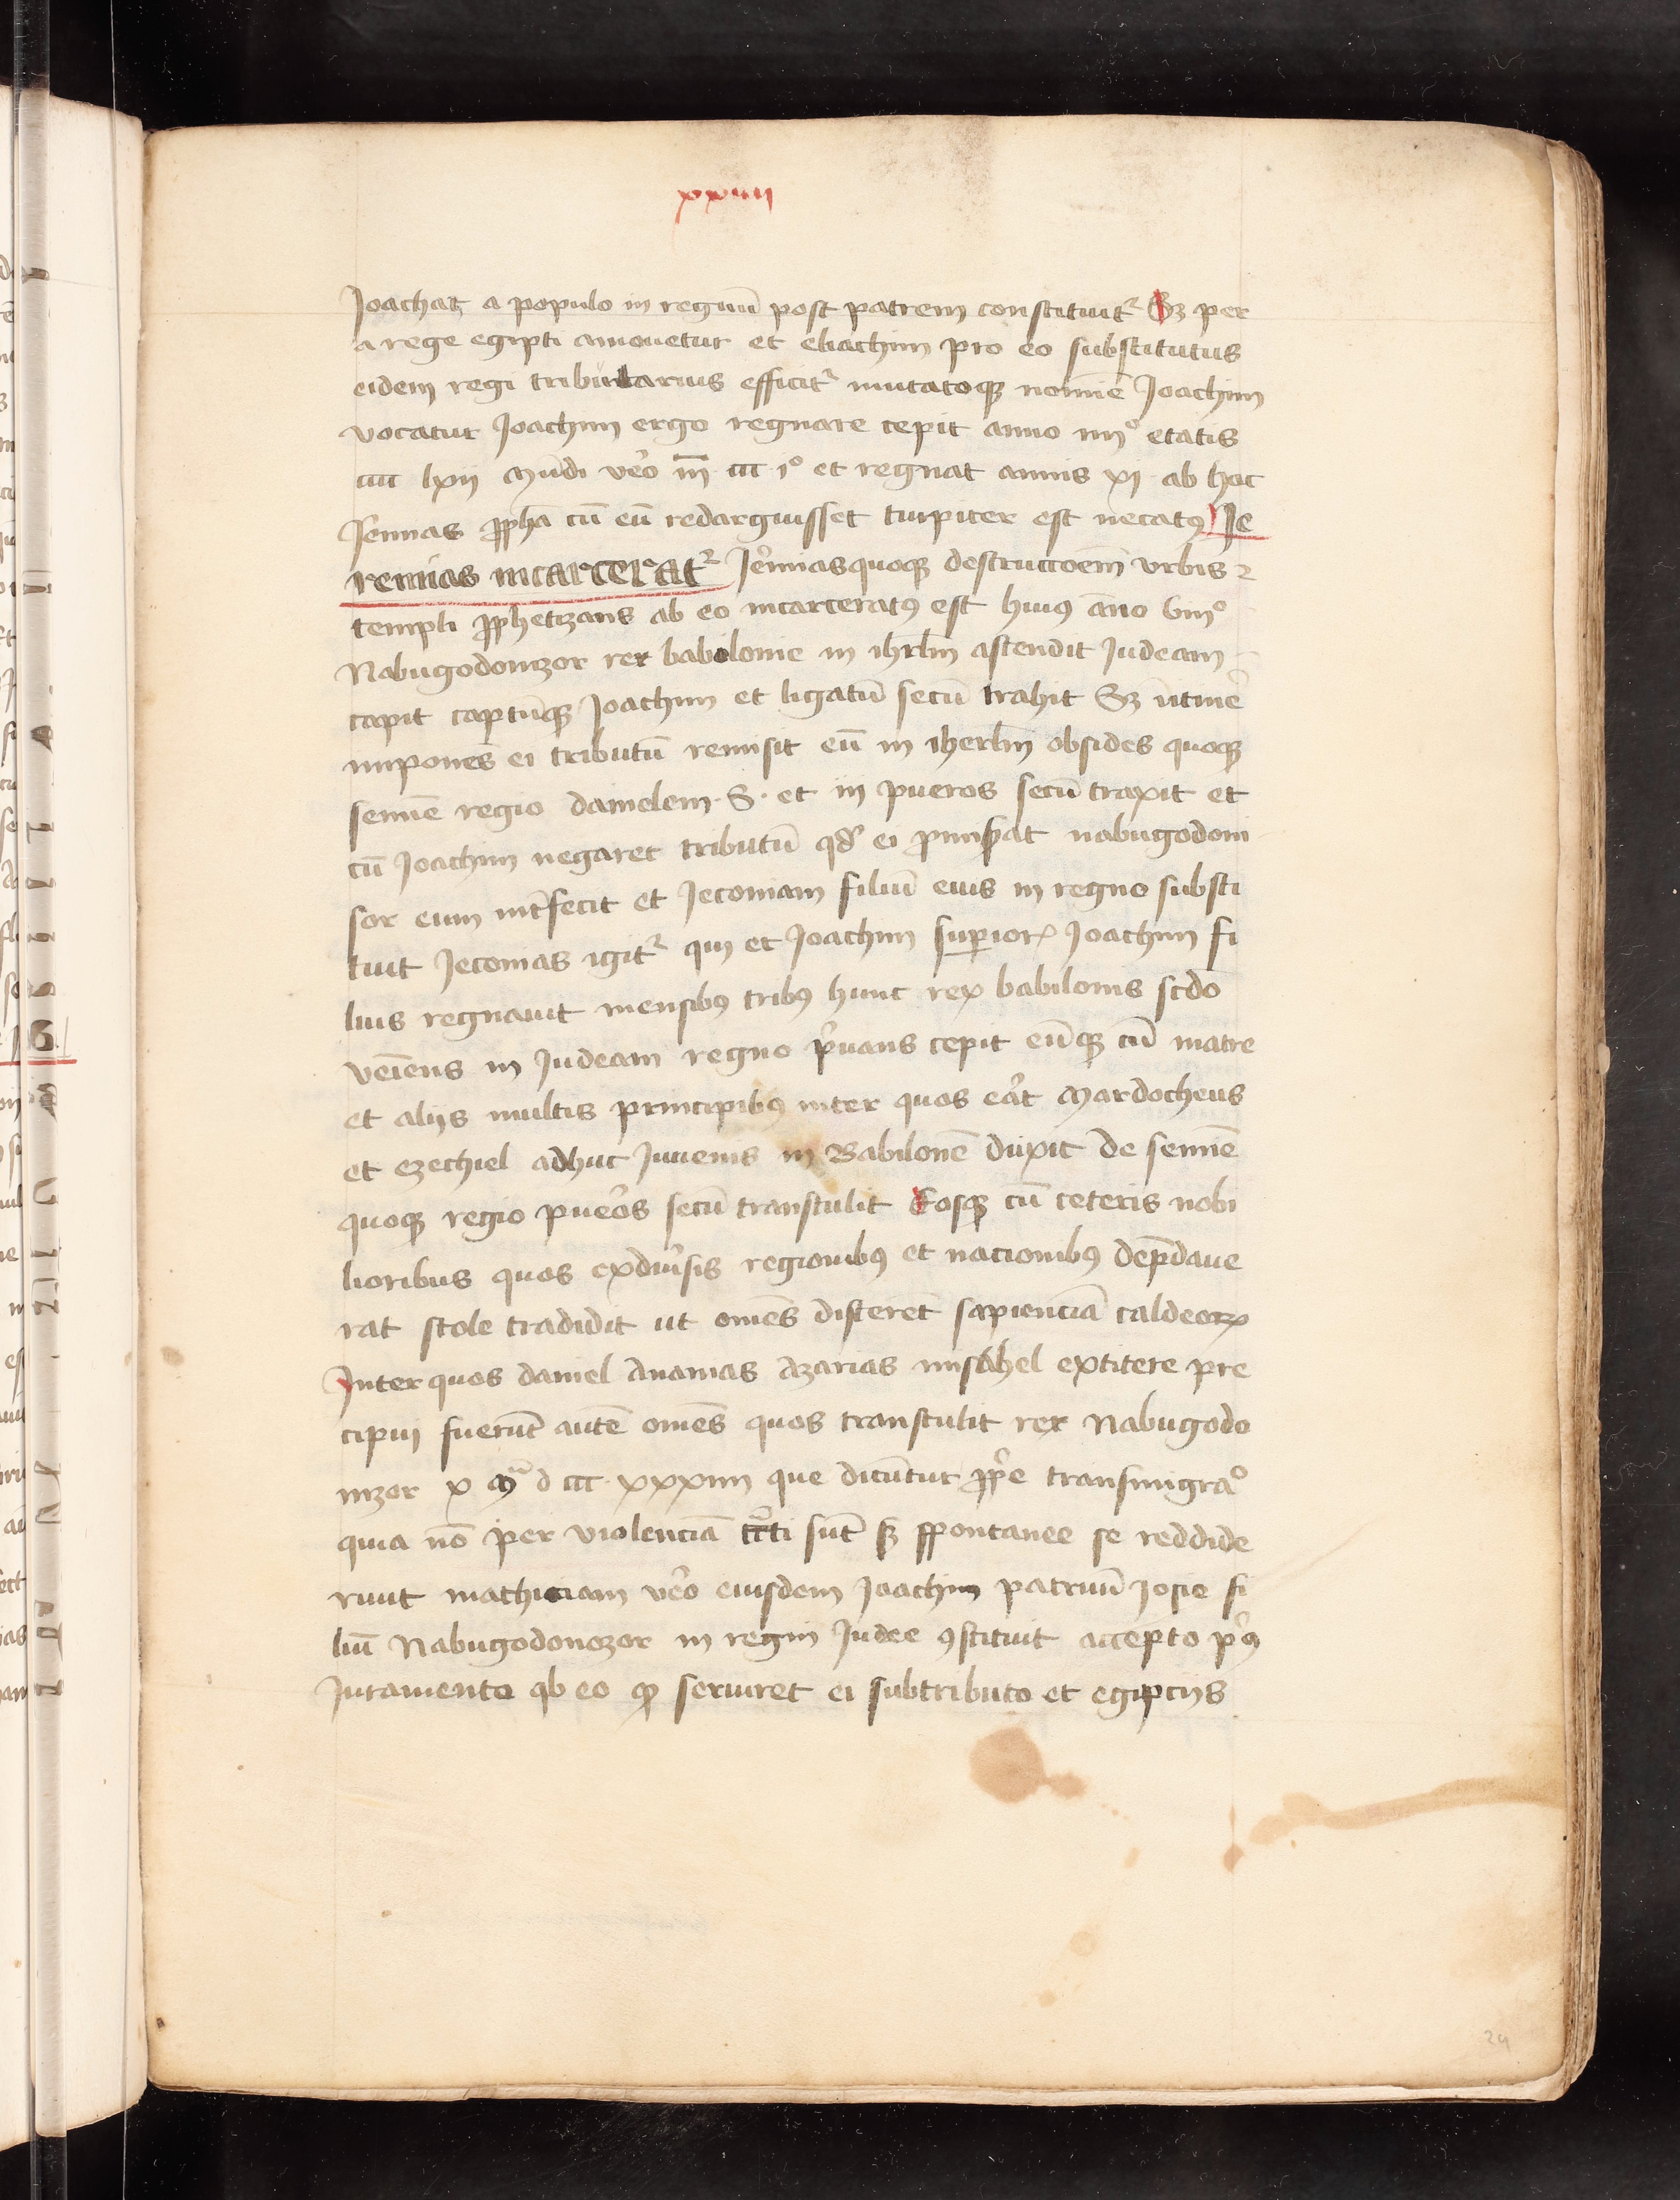 xxiiii
Joachat a populo in regnū post patrem constituit² Sʒ per
a rege egipti amouetur et eliachim pro eo substitutus
eidem regi tributarius efficit² mutatoqꝫ nomīe Joachim
vocatur Joachim ergo regnare cepit anno iiii° etatis
cccc lxii Mundi vēo m̄ ccc i° et regnat annis xi ab hoc
Jēmias ꝓpha cū eū redarguisset turpiter est necatꝯ Je
remias incarcerat² Jēmias quoqꝫ destructōem vrbis ⁊
templi ꝓphetizans ab eo incarceratꝯ est huiꝯ āno viii°
Nabugodonizor rex babilonie in ihrlm̄ ascendit Judeam
capit captūqꝫ Joachim et ligatū secū trahit Sʒ
imponēs ei tributū remisit eū in iherlm̄ obsides quoqꝫ
semīe regio danielem . S . et iii pueros secū traxit et
cū Joachim negaret tributū qd̓ ei ꝓmiserat nabugodoni
sor eum int̄fecit et Jeconiam filiū eius in regno substi
tuit Jeconias igit² qui et Joachim superioꝝ Joachim fi
lius regnauit mensibꝯ tribꝯ hunc rex babilonis scdo
veiēns in Judeam regno p̓uans cepit eūqꝫ cū matre
et aliis multis principibꝯ inter quos eāt Mardocheus
et ezechiel adhuc Juuenis in Babilonē duxit de semīe
quoqꝫ regio puēos secū transtulit Eosqꝫ cū ceteris nobi
lioribus quos ex diūsis regionibꝯ et nacionibꝯ dep̄daue
rat scole tradidit ut omēs discerēt sapienciā caldeoꝝ
Inter quos daniel Ananias Azarias misahel extitere pre
cipui fuerūt autē omēs quos transtulit rex Nabugodo
nizor x Mᵃ d ccc xxxiiii que dicūntur ꝓp̓e transmigra°
quia nō per violenciā tc̄ti sūt sꝫ spontanee se reddide
runt mathiciam vēo eiusdem Joachim patruū Josie fi
liū Nabugodonozor in regm̄ Judee ꝯstituit accepto p̓ꝯ
Juramento qb eo ꝙ seruiret ei sub tributo et egipciis
24